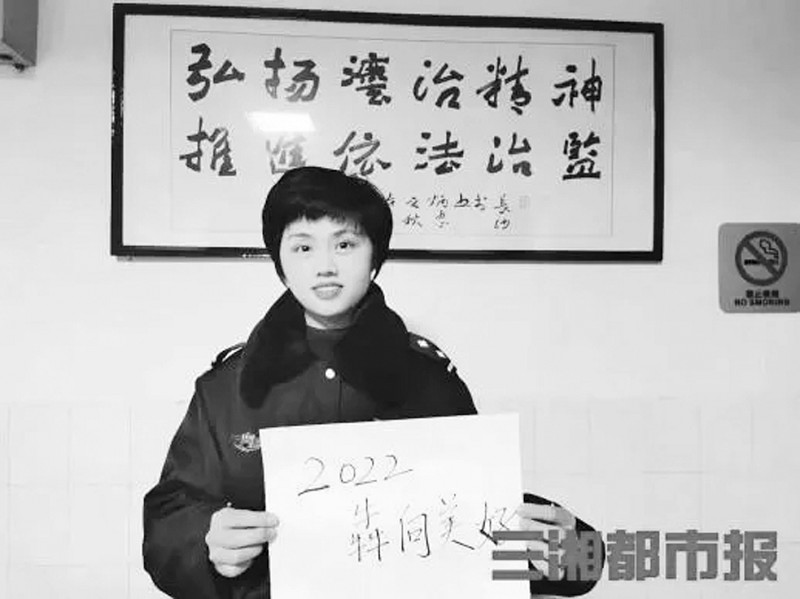 弘扬灋治精神
推進依法治監
禁止吸烟
NO SMOKING
2022
犇向美好
三湘都市报